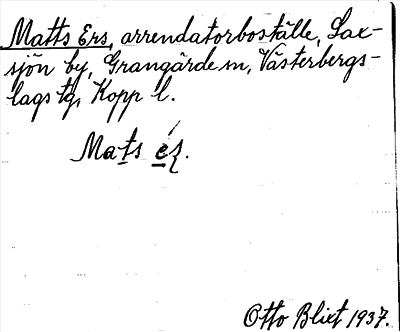 Matts Ers, arrendatorboställe, Lax-
sjön by, Grangärde sn, Västerbergs-
lags tg, Kopp l.
Mats
Otto Blixt 1937.